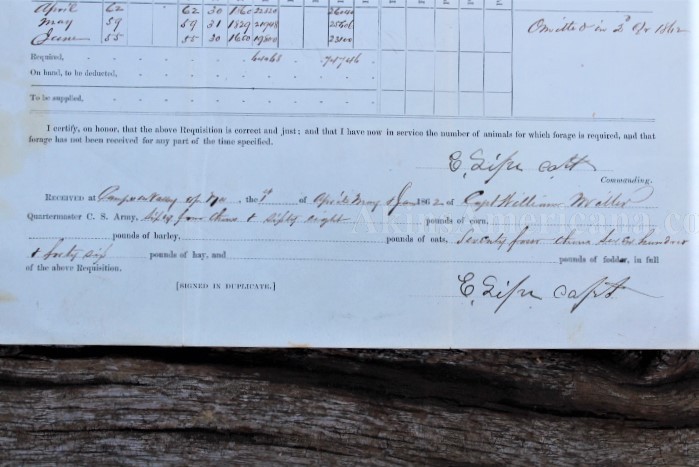 April 62 62 30 1860 22320 26040
May 59 59 31 1829 21948 25606
June 55 55 30 1650 19800 23100
Omitted in 2d Qr 1862
Required, 64068 74746
On hand, to be deducted,
To be supplied,
I certify, on honor, that the above Requisition is correct and just; and that I have now in service the number of animals for which forage is required, and that
forage has not been received for any part of the time specified.
Capt
Commanding.
RECEIVED at Camp the of April May & June 1862 of Capt William Miller
Quartermaster C. S. Army, Sixty four thous & sixty eight pounds of corn,
AkinsAmericana.co
pounds of barley, pounds of oats, Seventy four thous Seven hundred
& forty six pounds of hay, and pounds of fodder, in full
of the above Requisition.
[SIGNED IN DUPLICATE.]
Capt.